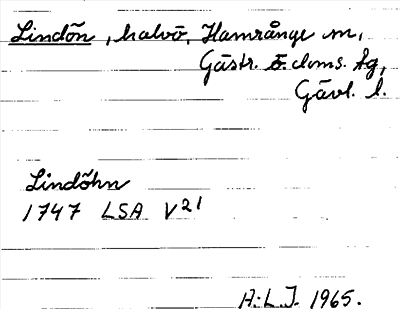 Lindön, halvö, Hamrånge sn,
Gästr. ö. doms. tg,
Gävl. l.
Lindöhn
1747 LSA V21
A.L.J. 1965.